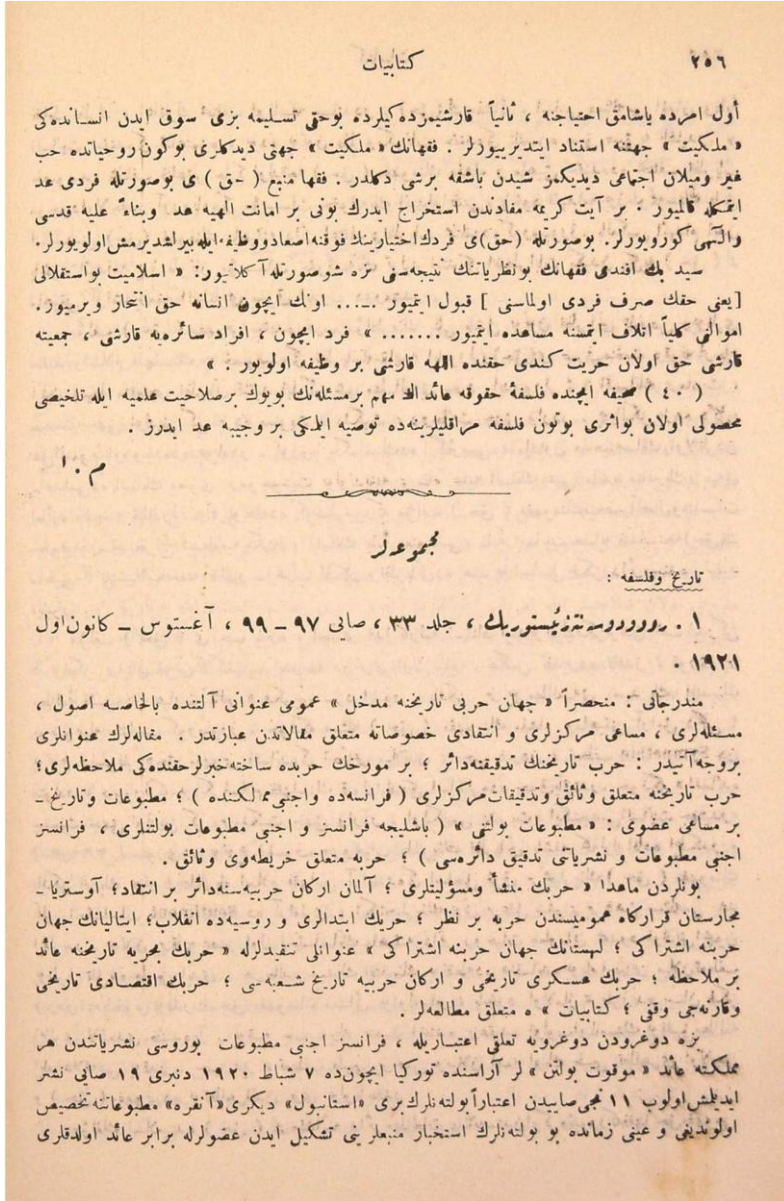 ٢٥٦ كتابيات
أول امرده ياشامق احتياجنه ، ثانياً قارشيمزده كيلرده بوحقى تسليمه بزى سوق ايدن انسانده كى
« ملكيت » جهتنه استناد ايتديرييورلر . فقهانك « ملكيت » جهتى ديدكلرى بوكون روحياتده حب
غير وميلان اجتماعى ديديكمز شيدن باشقه برشى دكلدر . فقها منبع ( حق ) ى بوصورتله فردى عد
ايتمكله قالميور . بر آيت كريمه مفادندن استخراج ايدرك بونى بر امانت الهيه عد وبناءً عليه قدسى
والٓهى كورويورلر. بوصورتله (حق)ى فردك اختيارينك فوقنه اصعاد ووظيفه ايله بيرلشديرمش اولويورلر.
سيد بك افندى فقهانك بونظرياتنك نتيجه سنى بزه شوصورتله آكلاتيور: « اسلاميت بواستقلالى
[ يعنى حقك صرف فردى اولماسنى ] قبول ايتميور ..... اونك ايچون انسانه حق انتحار ويرميور.
اموالنى كلياً اتلاف ايتمسنه مساعده ايتميور ....... » فرد ايچون ، افراد سائره يه قارشى ، جمعيته
قارشى حق اولان حريت كندى حقنده اللهه قارشى بر وظيفه اولويور . »
( ٤٠ ) صحيفه ايچنده فلسفهٔ حقوقه عائد اك مهم برمسئله نك بويوك برصلاحيت علميه ايله تلخيصى
محصولى اولان بواثرى بوتون فلسفه مراقليلرينه ده توصيه ايلمكى بر وجيبه عد ايدرز .
م . ا
مجموعه لر
تاريخ وفلسفه :
١ . روووودوسه نته زئيستوريك ، جلد ٣٣ ، صايى ٩٧ – ٩٩ ، آغستوس – كانون اول
١٩٢١ .
مندرجاتى : منحصراً « جهان حربى تاريخنه مدخل » عمومى عنوانى آلتنده بالخاصه اصول ،
مسئله لرى ، مساعى مركزلرى و انتقادى خصوصاته متعلق مقالاتدن عبارتدر . مقاله لرك عنوانلرى
بروجه آتيدر : حرب تاريخنك تدقيقنه دائر ؛ بر مورخك حربده ساخته خبرلر حقنده كى ملاحظه لرى؛
حرب تاريخنه متعلق وثائق وتدقيقات مركزلرى ( فرانسه ده واجنبى مملكتده ) ؛ مطبوعات وتاريخ –
بر مساعى عضوى : « مطبوعات بولتنى » ( باشليجه فرانسز و اجنبى مطبوعات بولتنلرى ، فرانسز
اجنبى مطبوعات و نشرياتى تدقيق دائره سى ) ؛ حربه متعلق خريطه وى وثائق .
بونلردن ماعدا « حربك منشأ ومسؤليتلرى ؛ آلمان اركان حربيه سنه دائر بر انتقاد؛ آوستريا –
مجارستان قراركاه عموميسندن حربه بر نظر ؛ حربك ابتدالرى و روسيه ده انقلاب؛ ايتاليانك جهان
حربنه اشتراكى ؛ لهستانك جهان حربنه اشتراكى » عنوانلى تنقيدلرله « حربك بحريه تاريخنه عائد
بر ملاحظه ؛ حربك عسكرى تاريخى و اركان حربيه تاريخ شعبه سى ؛ حربك اقتصادى تاريخى
وقارنه جى وقفى ؛ كتابيات » ه متعلق مطالعه لر .
بزه دوغرودن دوغرويه تعلقى اعتباريله ، فرانسز اجنبى مطبوعات بوروسى نشرياتندن هر
مملكته عائد « موقوت بولتن » لر آراسنده توركيا ايچون ده ٧ شباط ١٩٢٠ دنبرى ١٩ صايى نشر
ايديلمش اولوب ١١ نجى صاييدن اعتباراً بولته نلرك برى «استانبول» ديكرى «آنقره» مطبوعاتنه تخصيص
اولونديغى و عينى زمانده بو بولته نلرك استخبار منبعلرينى تشكيل ايدن عضولرله برابر عائد اولدقلرى